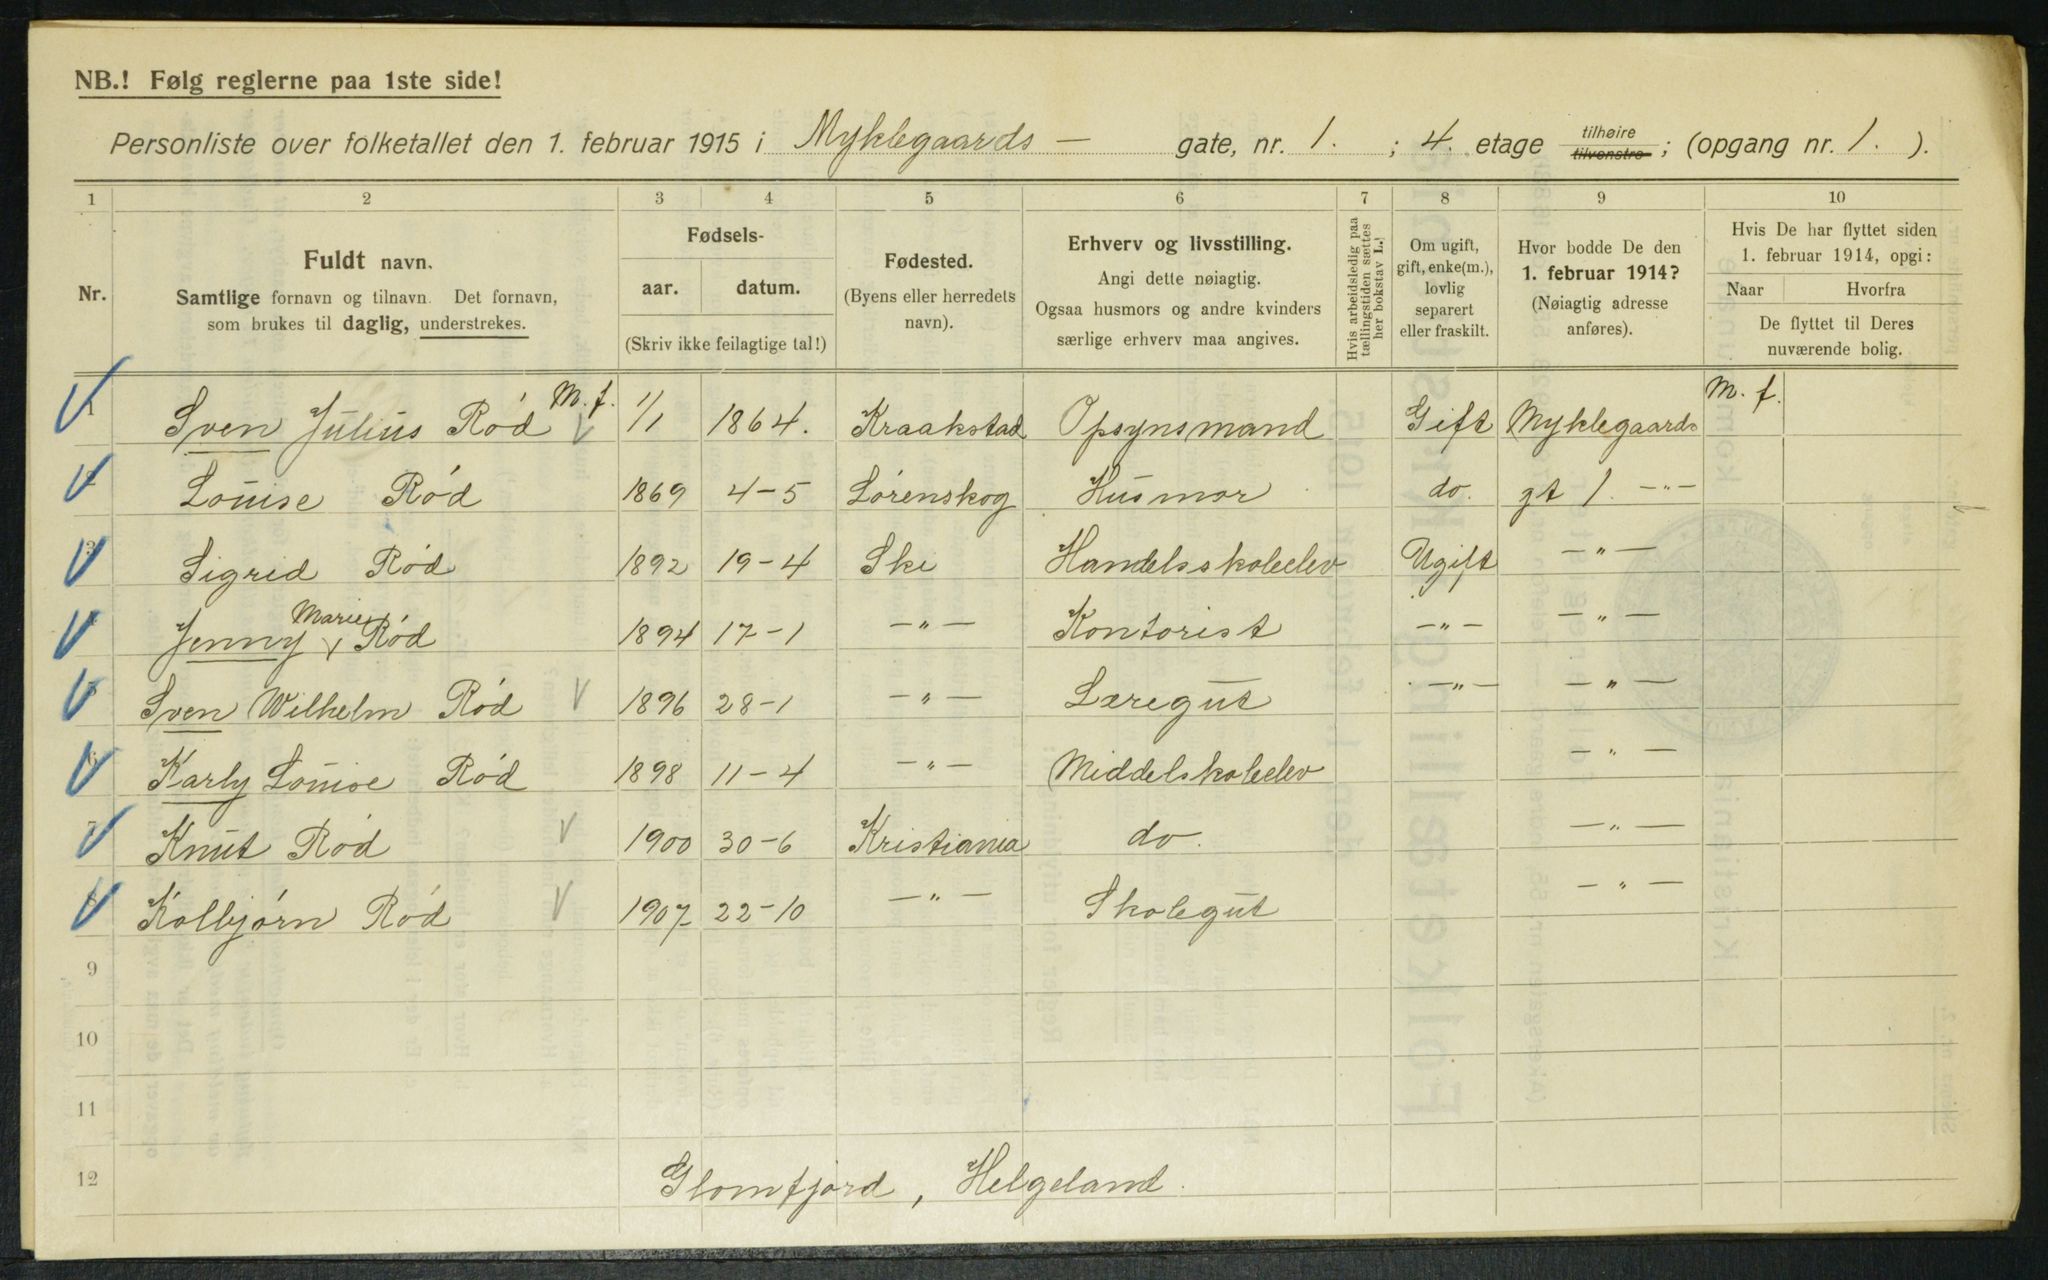 NB.! Følg reglerne paa 1ste side!
Personliste over folketallet den 1. februar 1915 i Myklegaards — gate, nr. 1. ; 4. etage tilhøire tilvenstre ; (opgang nr. 1. ).
1 2 3 4 5 6 7 8 9 10
Nr.
Fuldt navn.
Samtlige fornavn og tilnavn. Det fornavn,
som brukes til daglig, understrekes.
Fødsels-
aar. datum.
(Skriv ikke feilagtige tal!)
Fødested.
(Byens eller herredets
navn).
Erhverv og livsstilling.
Angi dette nøiagtig.
Ogsaa husmors og andre kvinders
særlige erhverv maa angives.
Hvis arbeidsledig paa
tællingstiden sættes
her bokstav L.!
Om ugift,
gift, enke(m.),
lovlig
separert
eller fraskilt.
Hvor bodde De den
1. februar 1914?
(Nøiagtig adresse
anføres).
Hvis De har flyttet siden
1. februar 1914, opgi:
Naar Hvorfra
De flyttet til Deres
nuværende bolig.
1 Sven Julius Rød M. f. 1/1 1864. Kraakstad Opsynsmand Gift Myklegaards M. f.
2 Louise Rød 1869 4-5 Lørenskog Husmor do. gt 1. -"-
3 Sigrid Rød 1892 19-4 Ski Handelsskoleelev Ugift —"—
4 Jenny Marie Rød 1894 17-1 —"— Kontorist —"— —"—
5 Sven Wilhelm Rød 1896 28-1 —"— Læregut —"— —"—
6 Karly Louise Rød 1898 11-4 —"— Middelskoleelev —"—
7 Knut Rød 1900 30-6 Kristiania do. —"—
8 Kolbjørn Rød 1907 22-10 —"— Skolegut —"—
9
10
11
12 Glomfjord, Helgeland.